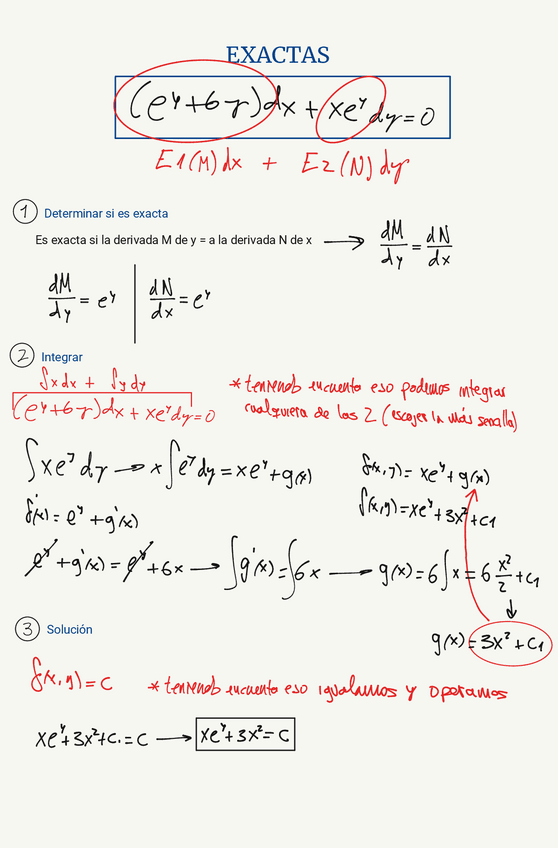 EXACTAS
(e^y+6y)dx + xe^y dy=0
E1(M)dx + E2(N)dy
1 Determinar si es exacta
Es exacta si la derivada M de y = a la derivada N de x → dM/dy = dN/dx
dM/dy = e^y | dN/dx = e^y
2 Integrar
∫xdx + ∫ydy
(e^y+6y)dx + xe^y dy=0
*teniendo encuenta eso podemos integrar
cualquiera de las 2 (escojer la más sencilla)
∫xe^y dy → x∫e^y dy = xe^y+g(x)
f(x,y)= xe^y+g(x)
f'(x)= e^y +g'(x)
f(x,y)=xe^y+3x²+C1
e^y+g'(x)=e^y+6x → ∫g'(x)=∫6x → g(x)=6∫x=6 x²/2+C1
↓
g(x)=3x²+C1
3 Solución
f(x,y)=C *teniendo encuenta eso igualamos y operamos
xe^y+3x²+C1=C → xe^y+3x²=C